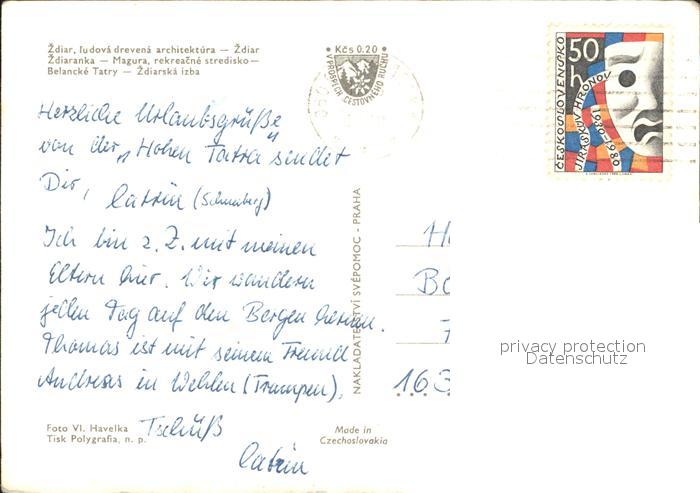 Ždiar, ľudová drevená architektúra — Ždiar
Ždiaranka — Magura, rekreačné stredisko—
Belanské Tatry — Ždiarská izba
• Kčs 0.20 •
V PROSPECH CESTOVNÉHO RUCHU
ČESKOSLOVENSKO
50 h
JIRÁSKŮV HRONOV
1930-1980
Herzliche Urlaubsgrüße
von der „Hohen Tatra" sendet
Dir, Catrin (Schneeberg)
Ich bin z. Z. mit meinen
Eltern hier. Wir wandern
jeden Tag auf den Bergen herum.
Thomas ist mit seinem Freund
Andreas in Wehlen (Trampen).
Tschüß
Catrin
NAKLADATELSTVÍ SVÉPOMOC - PRAHA
H
Bo
163
privacy protection
Datenschutz
Foto Vl. Havelka
Tisk Polygrafia, n. p.
Made in
Czechoslovakia